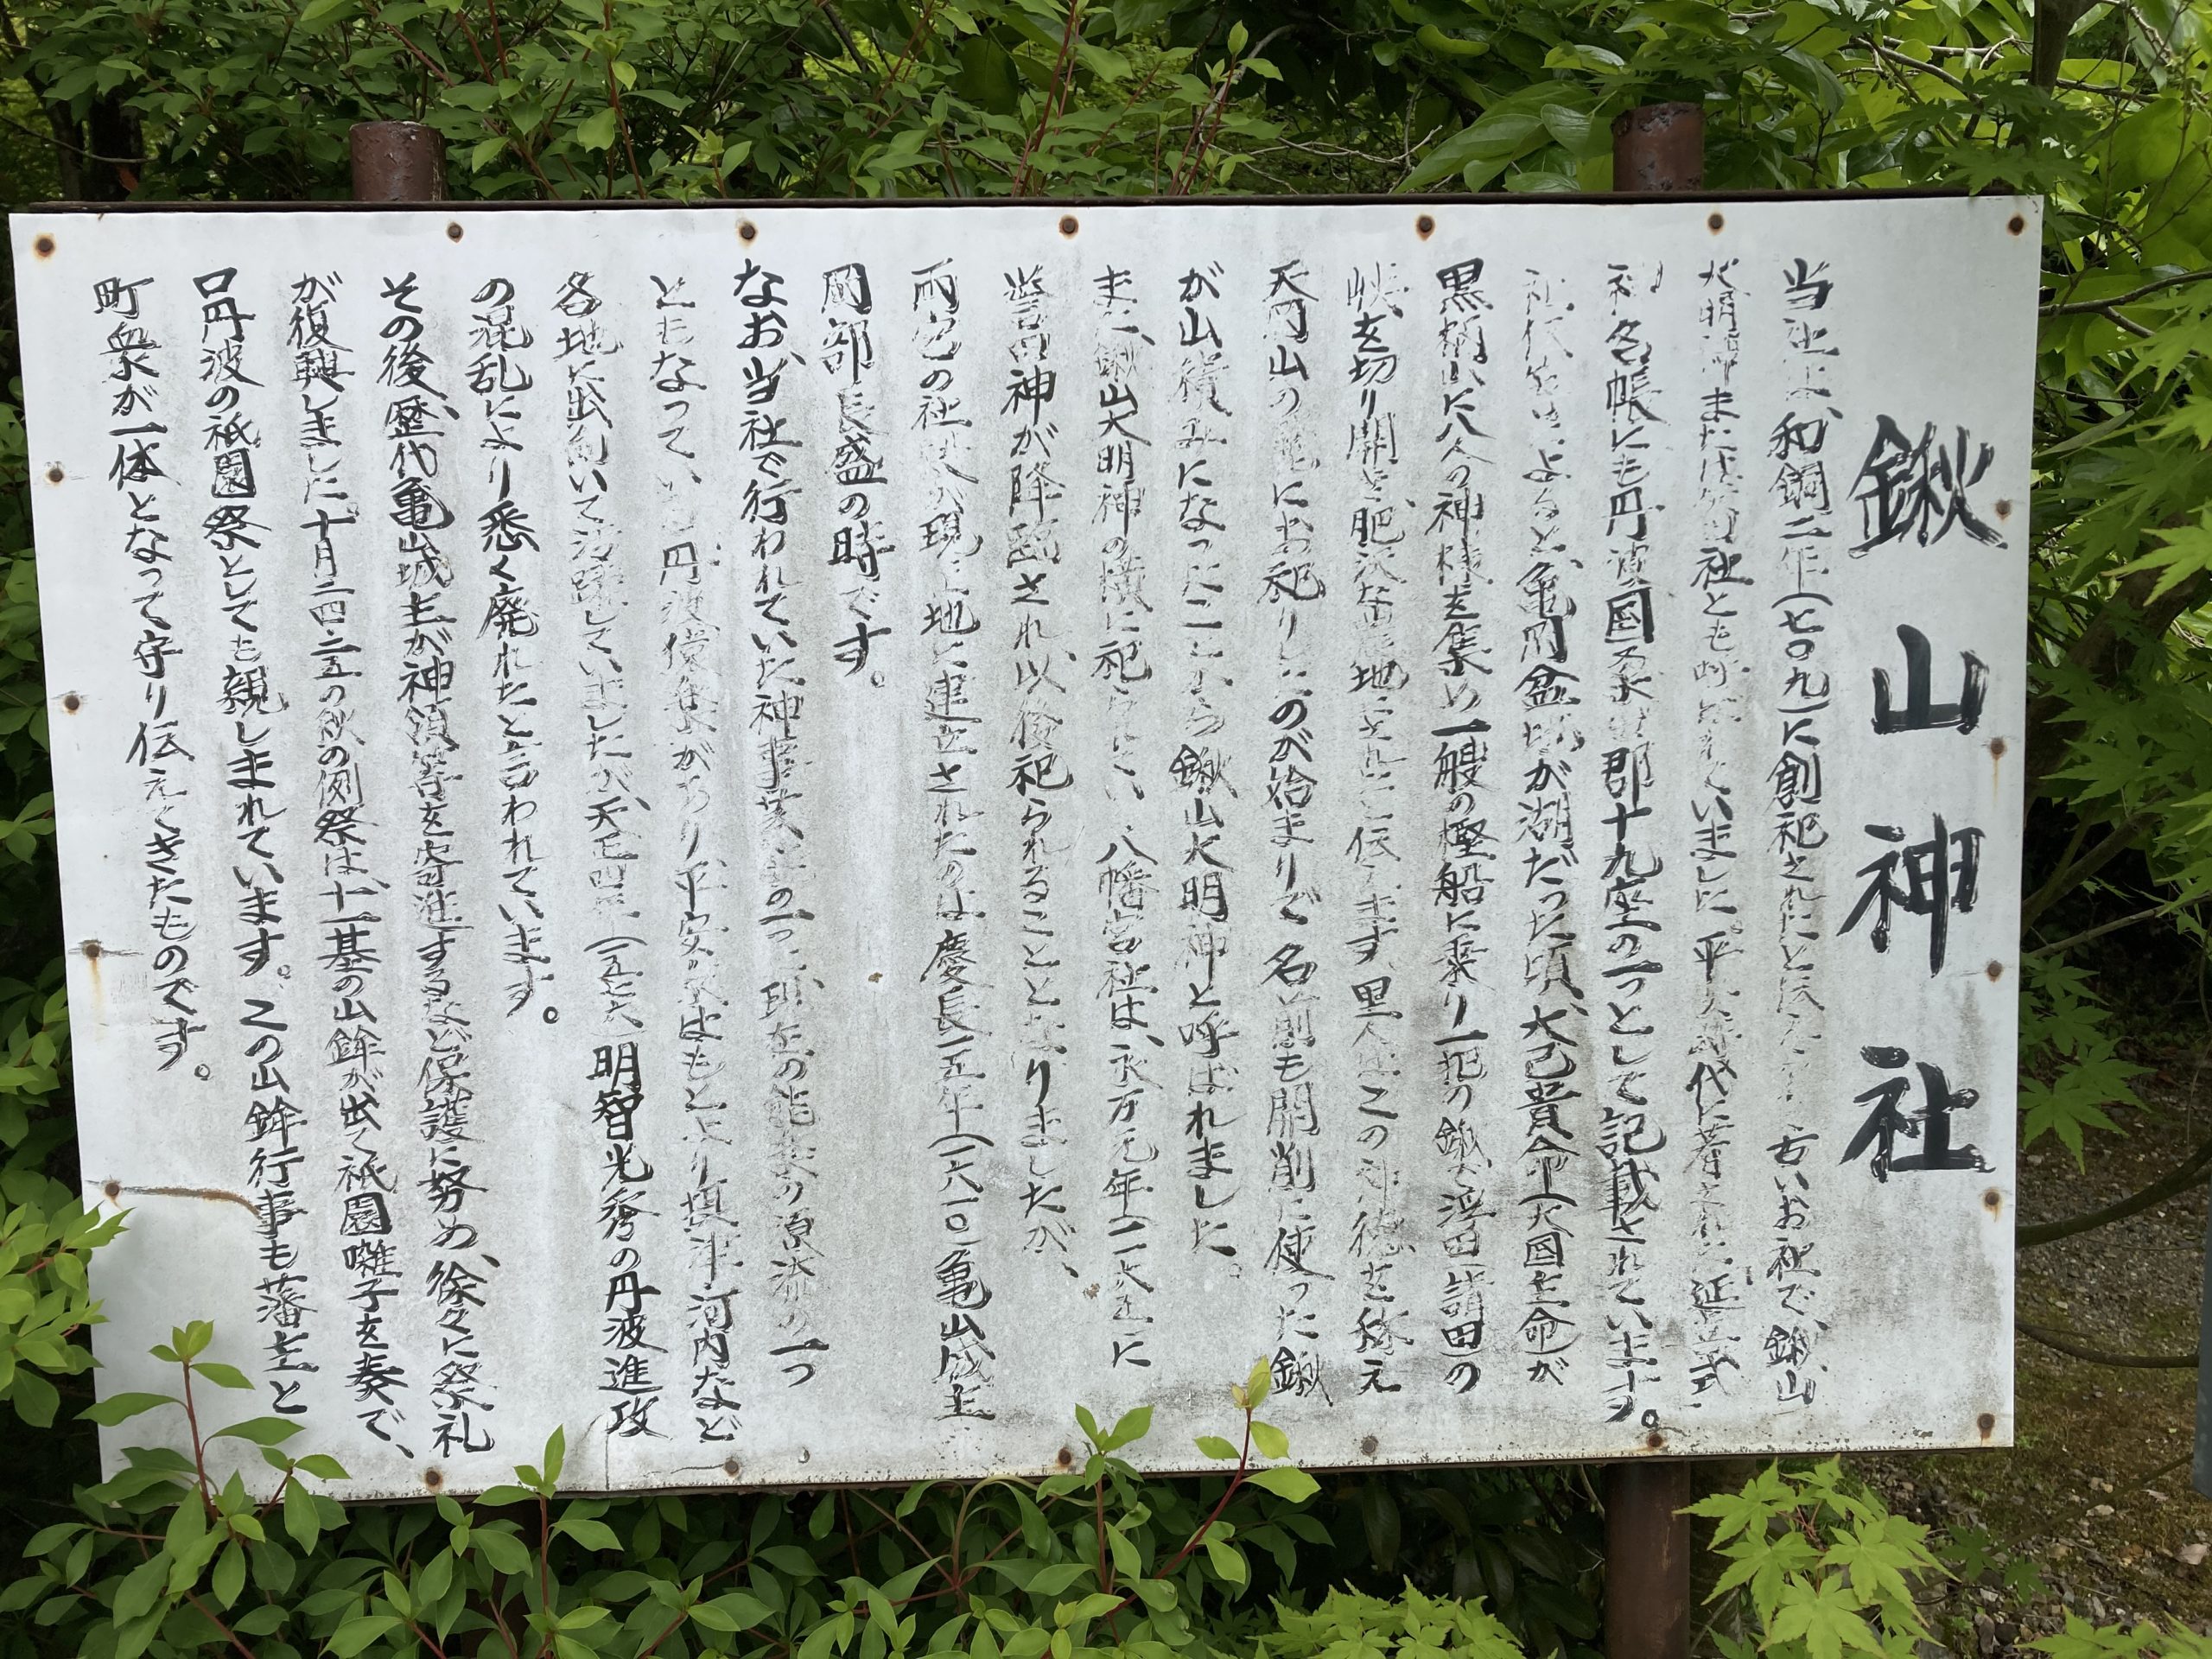 鍬山神社
当社は、和銅二年(七〇九)に創祀されたと伝えられる古いお社で、鍬山
大明神または矢田社とも呼ばれていました。平安時代に著された延喜式
神名帳にも丹波国桑田郡十九座の一つとして記載されています。
社伝等によると、亀岡盆地が湖だった頃、大己貴命(大国主命)が
黒柄山に八人の神様を集め一艘の樫船に乗り一把の鍬で浮田(請田)の
峡を切り開き肥沃な農地にされたと伝えます里人はこの神徳を称え
天岡山の麓にお祀りしたのが始まりで名前も開削に使った鍬
が山積みになったことから鍬山大明神と呼ばれました。
また、鍬山大明神の横に祀られている八幡宮社は、永万元年(一一六五)に
誉田神が降臨され以後祀られることとなりましたが、
両宮の社殿が現在地に建立されたのは慶長一五年(一六一〇)亀山城主
岡部長盛の時です。
なお、当社で行われていた神事芸能の一つに、現在の能楽の源流の一つ
ともなっている丹波猿楽があり平安の末はもとより摂津・河内など
各地に出向いて活躍していましたが、天正四年(一五七六)明智光秀の丹波進攻
の混乱により悉く廃れたと言われています。
その後、歴代亀山城主が神領等を寄進するなど保護に努め、徐々に祭礼
が復興しました。十月二四・二五の秋の例祭は、十一基の山鉾が出て祇園囃子を奏で、
口丹波の祇園祭としても親しまれています。この山鉾行事も藩主と
町衆が一体となって守り伝えてきたものです。